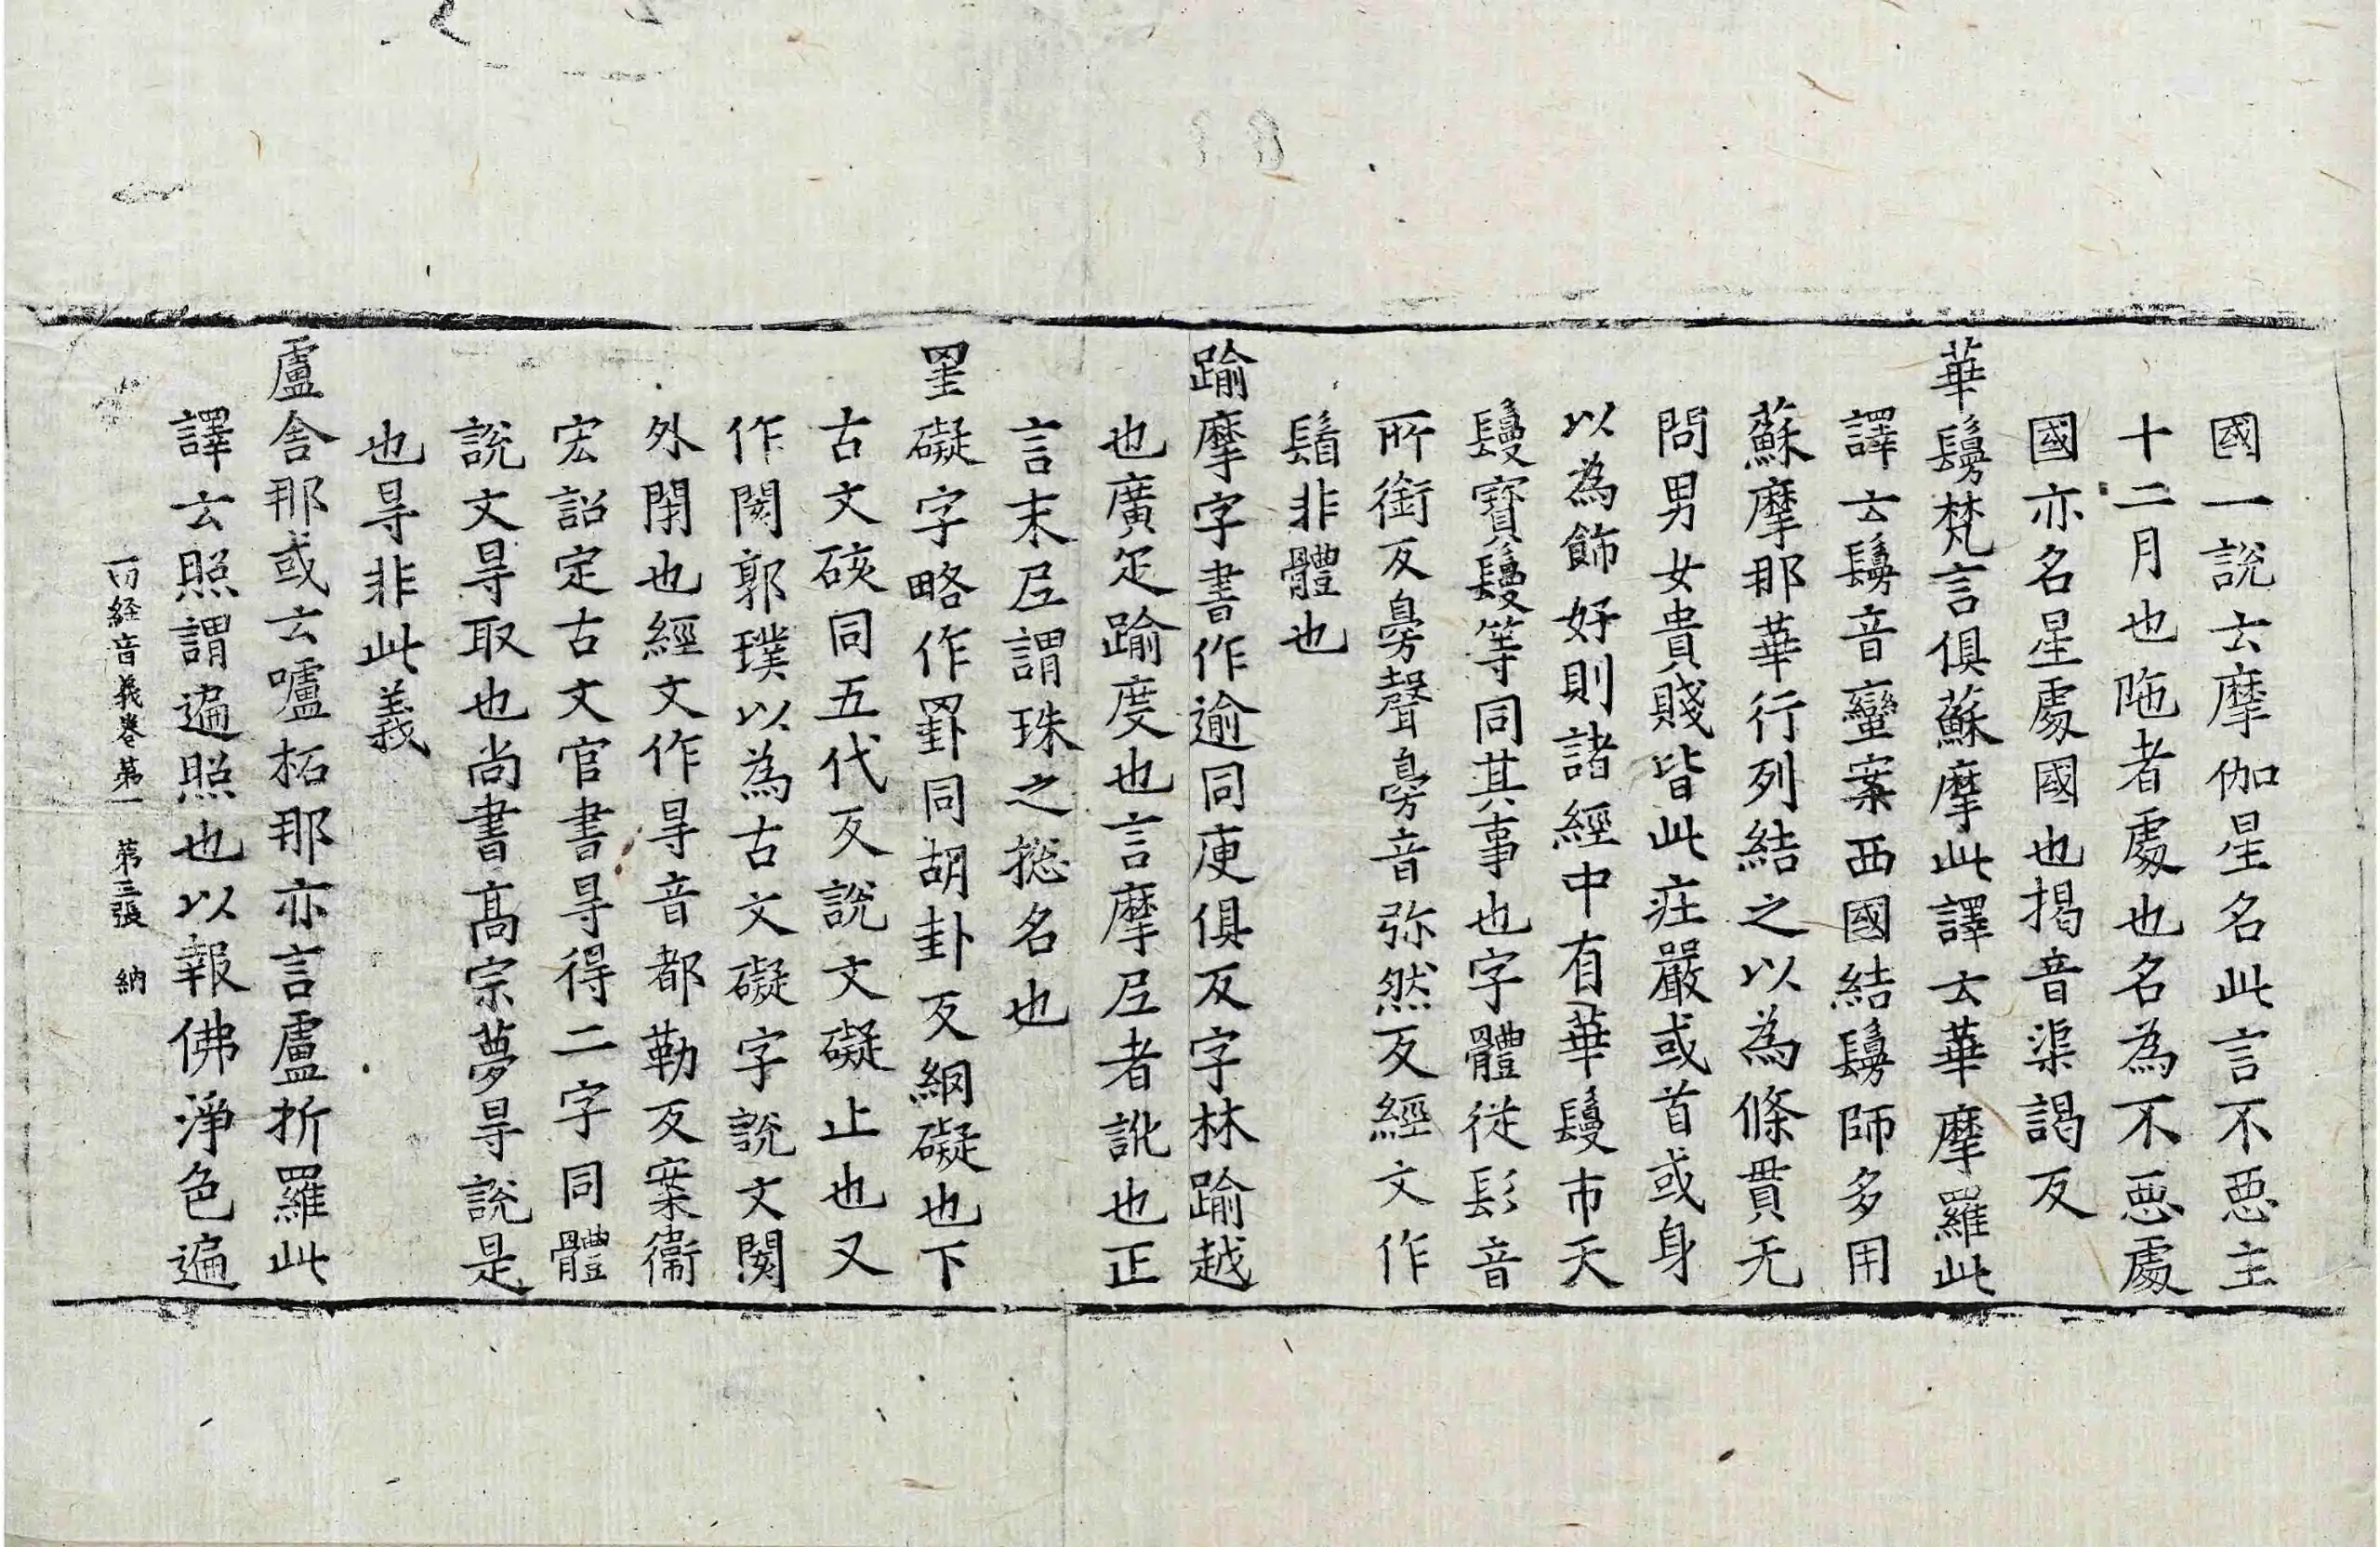 國一說云摩伽星名此言不惡主
十二月也陁者處也名為不惡處
國亦名星處國也揭音渠謁反
華鬘梵言俱蘇摩此譯云華摩羅此
譯云鬘音蠻案西國結鬘師多用
蘇摩那華行列結之以為條貫无
問男女貴賤皆此庄嚴或首或身
以為飾好則諸經中有華鬘市天
鬘寶鬘等同其事也字體從髟音
所銜反臱聲臱音弥然反經文作
鬚非體也
踰摩字書作逾同庾俱反字林踰越
也廣疋踰度也言摩尼者訛也正
言末尼謂珠之揔名也
罣礙字略作罫同胡卦反網礙也下
古文硋同五代反說文礙止也又
作閡郭璞以為古文礙字說文閡
外閇也經文作㝵音都勒反案衞
宏詔定古文官書㝵得二字同體
說文㝵取也尚書高宗夢㝵說是
也㝵非此義
盧舍那或云嚧柘那亦言盧折羅此
譯云照謂遍照也以報佛淨色遍
一切経音義卷第一 第三張 納